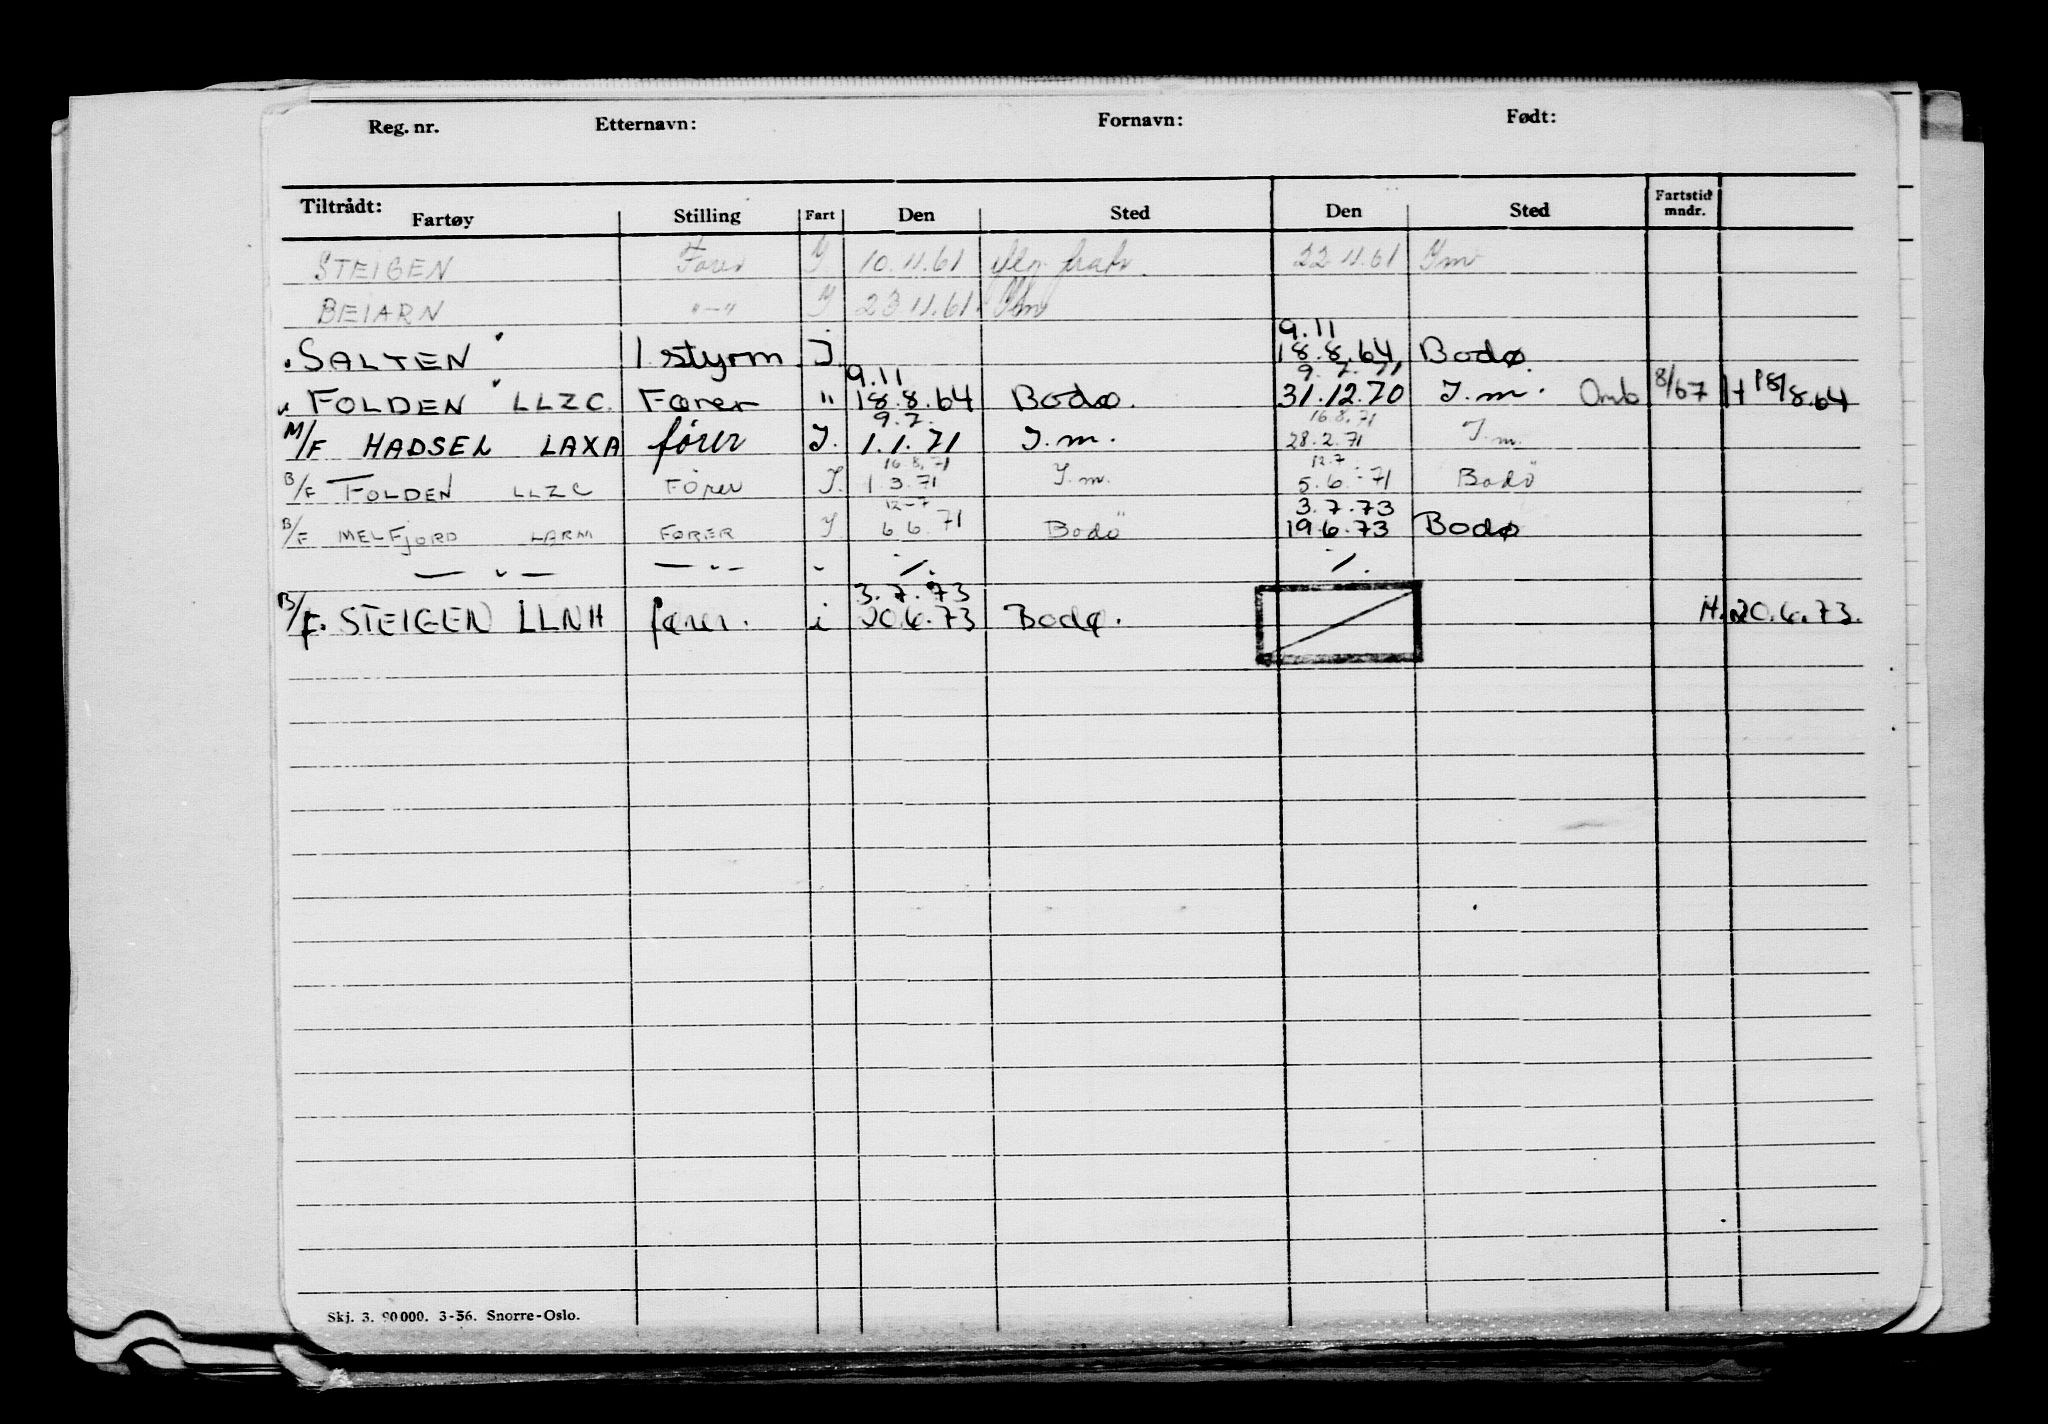 Reg. nr. Etternavn: Fornavn: Født:
Tiltrådt: Fartøy Stilling Fart Den Sted Den Sted Fartstid mndr.
STEIGEN Fører I 10.11.61 22.11.61 I.m.
BEIARN "-" I 23.11.61
9.11
SALTEN 1 styrm I. 18.8.64 Bodø.
9.11 9.7.71
FOLDEN LLZC. Fører " 18.8.64 Bodø. 31.12.70 I.m. Omb 8/67 H 18/8.64
9.7. 16.8.71
M/F HADSEL LAXA fører I. 1.1.71 I.m. 28.2.71 I.m.
16.8.71 12.7
B/F FOLDEN LLZC FÖRER I. 1 3.71 I.m. 5.6.71 Bodö
12-7 3.7.73
B/F MELFJORD LARM FØRER I. 6 6.71 Bodö 19.6.73 Bodø
— " — — " — " /. /.
3.7.73
B/F. STEIGEN LLNH fører. i 20.6.73 Bodø. H. 20.6.73.
Skj. 3. 90000. 3-56. Snorre-Oslo.